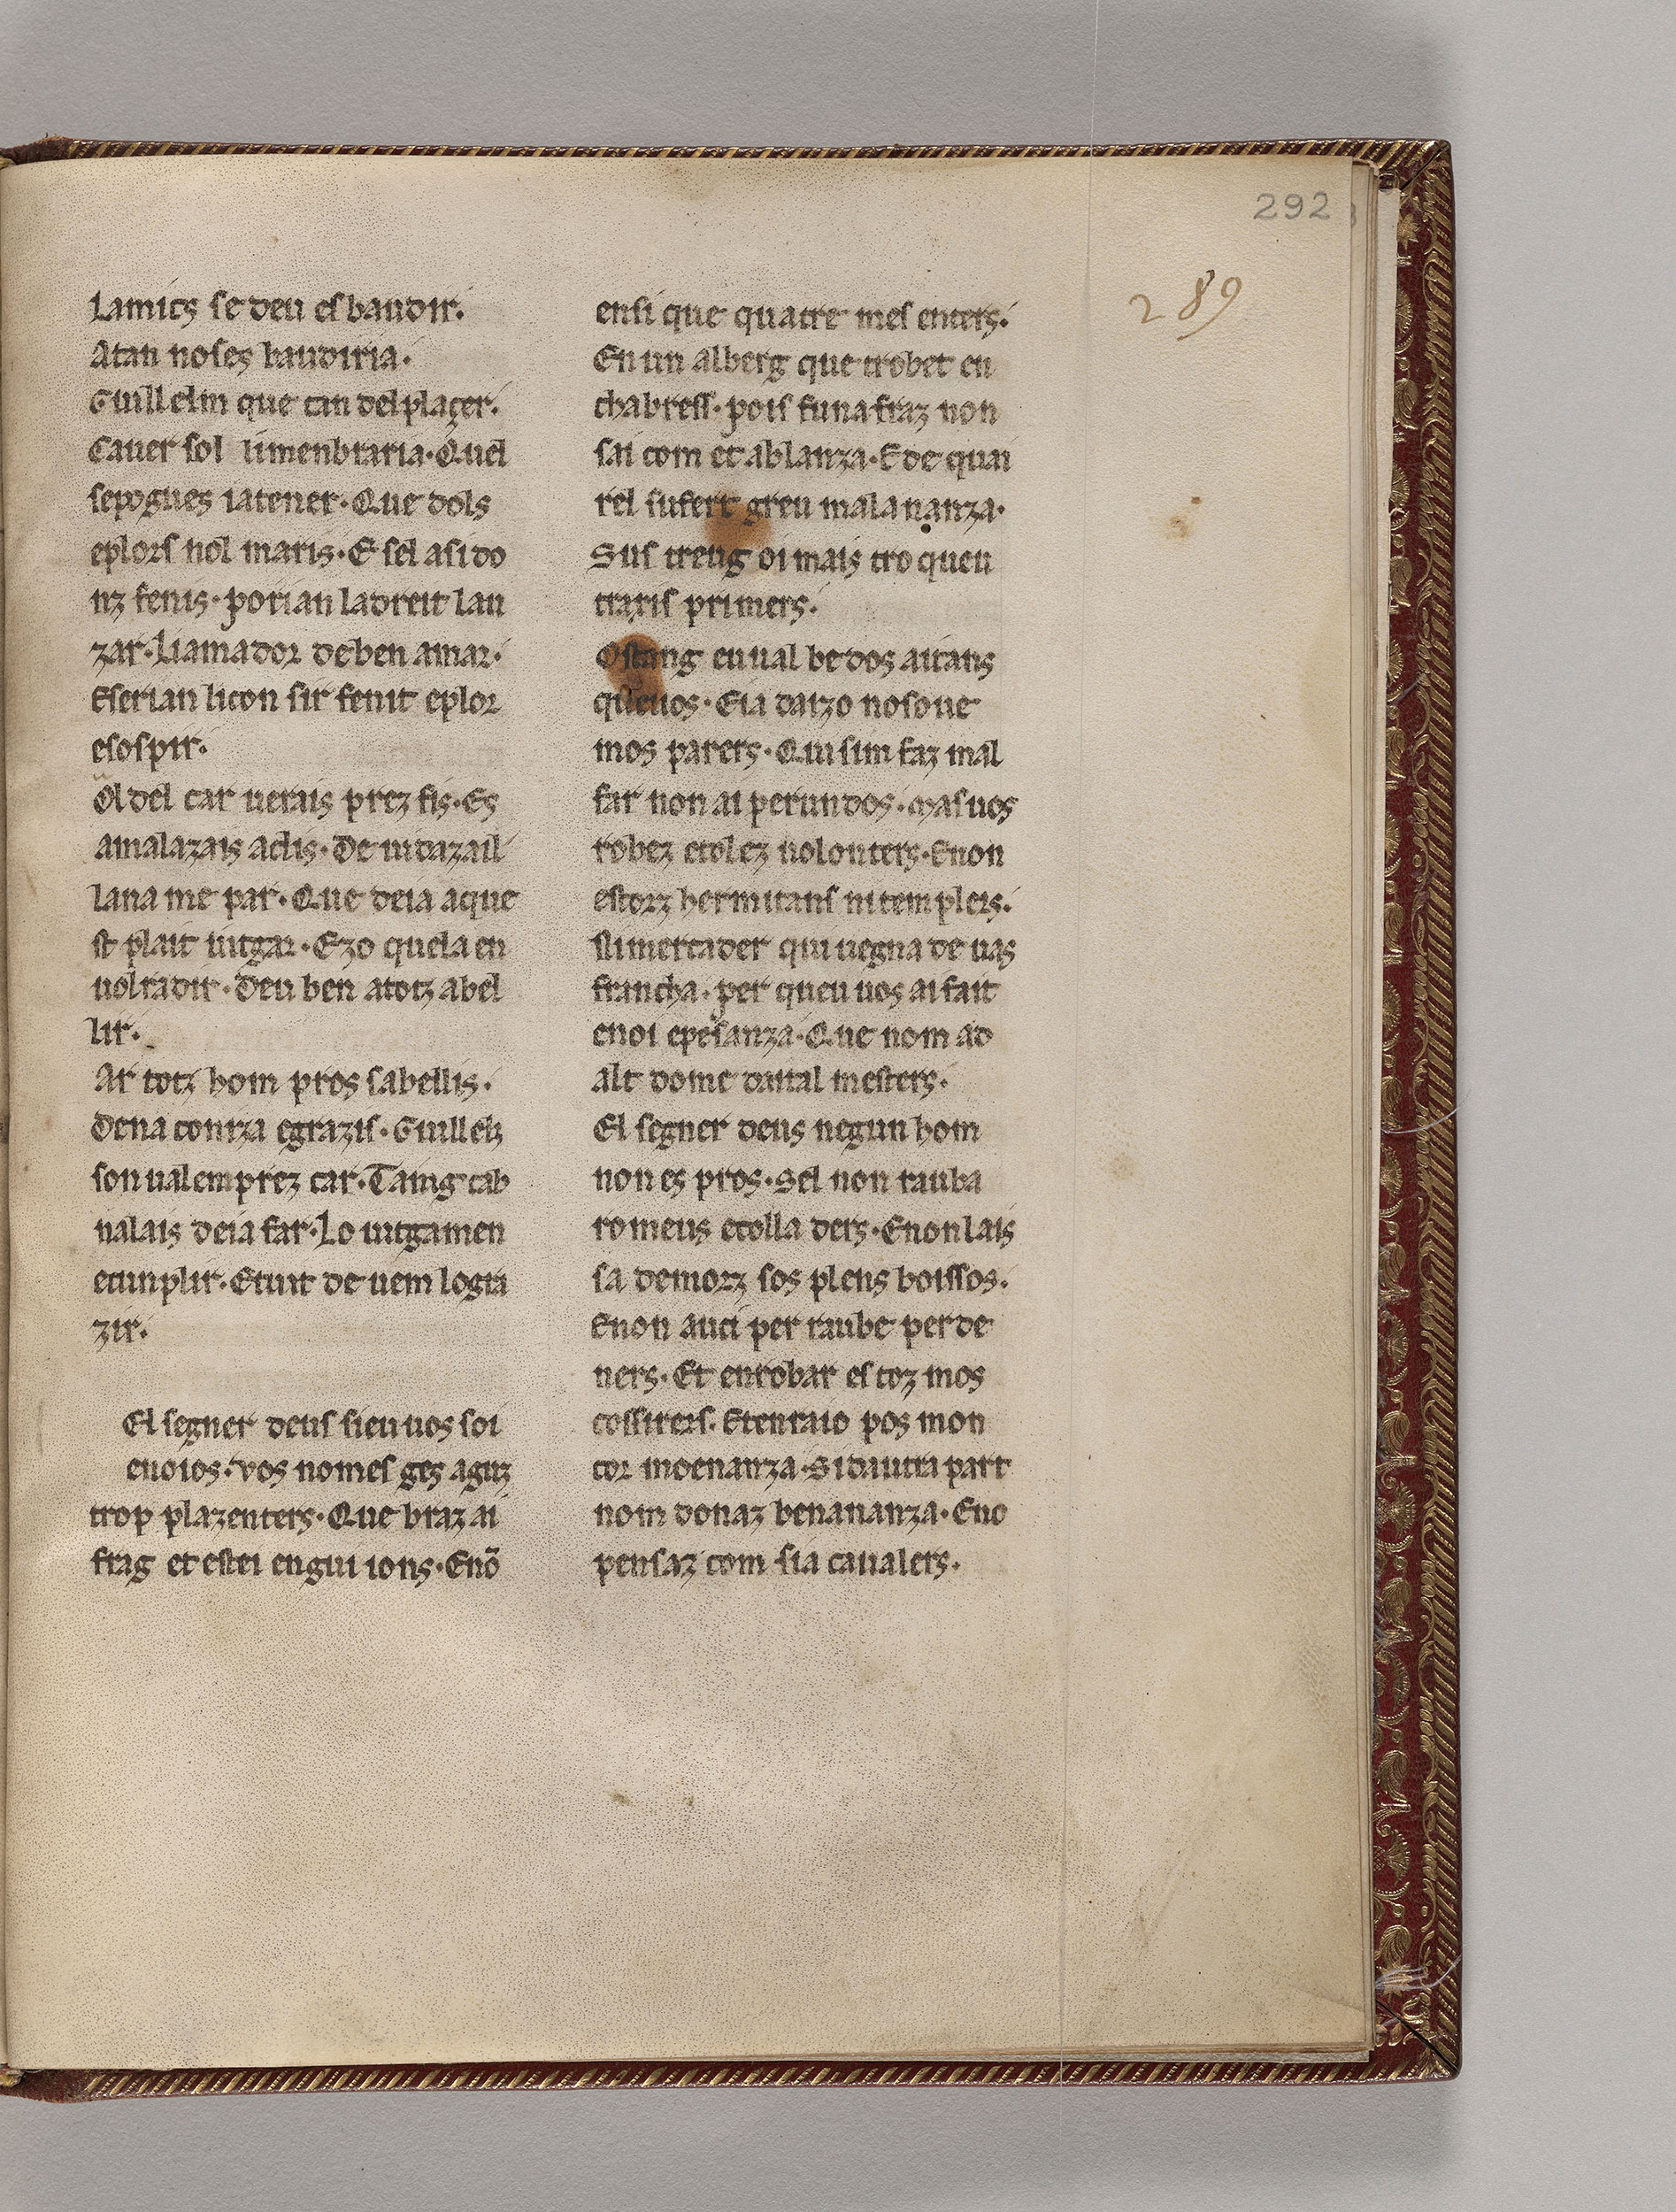 292
289
Lamics se deu esbaudir.
Atan noses baudiria.
Guillelm que tan delplaçer.
Cauer sol limenbraria. Quel
sepogues iatener. Que dols
eplors nol maris. E sel asi do
nz fenis. porian ladreit lau
zar. Liamador deben amar.
Eserian licon sir fenit eplor
esospir.
Ol del car uerais prez fis. Es
amalazais aclis. De uitazail
lana me par. Que deia aque
st plait iutgar. Ezo quela en
uolradir. Deu ben atotz abel
lir.
Ar totz hom pros sabellis.
Dena conrza egrazis. Guillelz
son ualemprez car. Taing cab
nalais deia far. Lo iutgamen
ecunplir. Etuit de uem logra
zir.
El segner deus sieu uos soi
enoios. vos nomes ges aguz
trop plazenters. Que braz ai
frag et estei engui ions. Enõ
ensi que quatre mes enters.
En un alberg que trobet en
chabress. pois funa fraz non
sai com et ablanza. E de quai
rel sufert greu mala nanza.
Sus treug oi mais tro queu
traris primers.
Ostang eu ual be dos aitans
queuos. Eia daizo nosoue
mos parers. Qui sim faz mal
far non ai perun dos. mas uos
robez etolez uolonters. Enon
estorz hermitans ni templers.
nimercader qui uegna de uas
francha. per queu uos ai fait
enoi epesanza. Que nom ad
alt dome daital mesters.
El segner deus negun hom
non es pros. Sel non rauba
romeus etolla ders. Enonlais
sa demorz sos plens boissos.
Enon auci per raube per de
ners. Et enrobar es toz mos
cossirers. Etenraio pos mon
cor indenanza. Si dautra part
nom donaz benananza. Eno
pensaz com sia caualers.